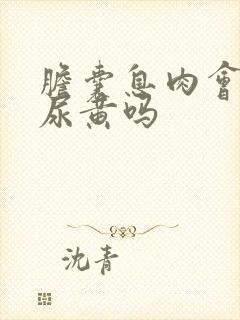 膽囊息肉會
尿黄吗
沈青